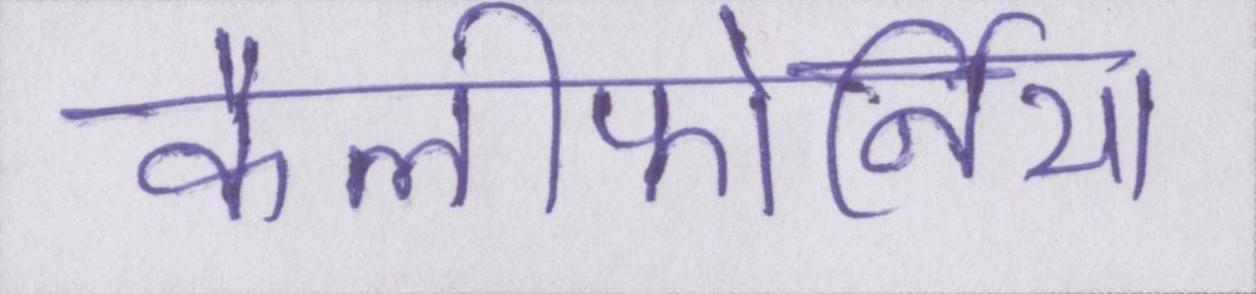 कैलीफोर्निया